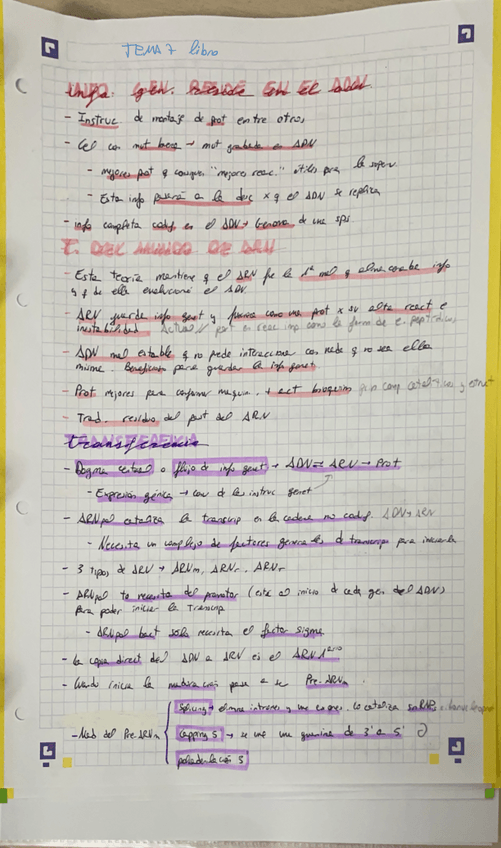 TEMA 7 libro
Info. gen. reside en el adn
- Instruc de montaje de prot entre otros
- Cel con mut buena → mut grabada en ADN
- mejores prot q consigue "mejores reac." útiles para la superv
- Esta info pasará a la desc x q el ADN se replica
- info completa codif en el ADN → Genoma de una sps.
T. DEL MUNDO DE ARN
- Esta teoría mantiene q el ARN fue la 1ª mol q almacenaba info
y q de ella evolucionó el ADN
- ARN guarda info genet y funciona como una prot x su alta react e
inestabilidad
- ADN mol estable q no puede interaccionar con nada q no sea ella
misma. Beneficioso para guardar la info genet.
- Prot mejores para conformar maquin. + act bioquim
- Trad. residuo del pasado del ARN
transferencia
- Dogma central o flujo de info genet → ADN ⇄ ARN → Prot.
- Expresión génica → conv de las instruc genet
- ARNpol cataliza la transcrip en la cadena no codif. ADN → ARN
- Necesita un complejo de factores generales d transcrip para iniciarla
- 3 tipos de ARN → ARNm, ARNt, ARNr
- ARNpol tb necesita del promotor (está al inicio de cada gen del ADN)
para poder iniciar la transcrip
- ARNpol bact solo necesita el factor sigma
- la copia direct del ADN a ARN es el ARN 1ario
- Cuando inicia la maduración pasa a ser Pre-ARNm
- Mad del Pre-ARNm
Splicing → elimina intrones y une exones. Lo cataliza snRNP
Capping 5' → se une una guanina de 3' a 5'
poliadenilación 3'